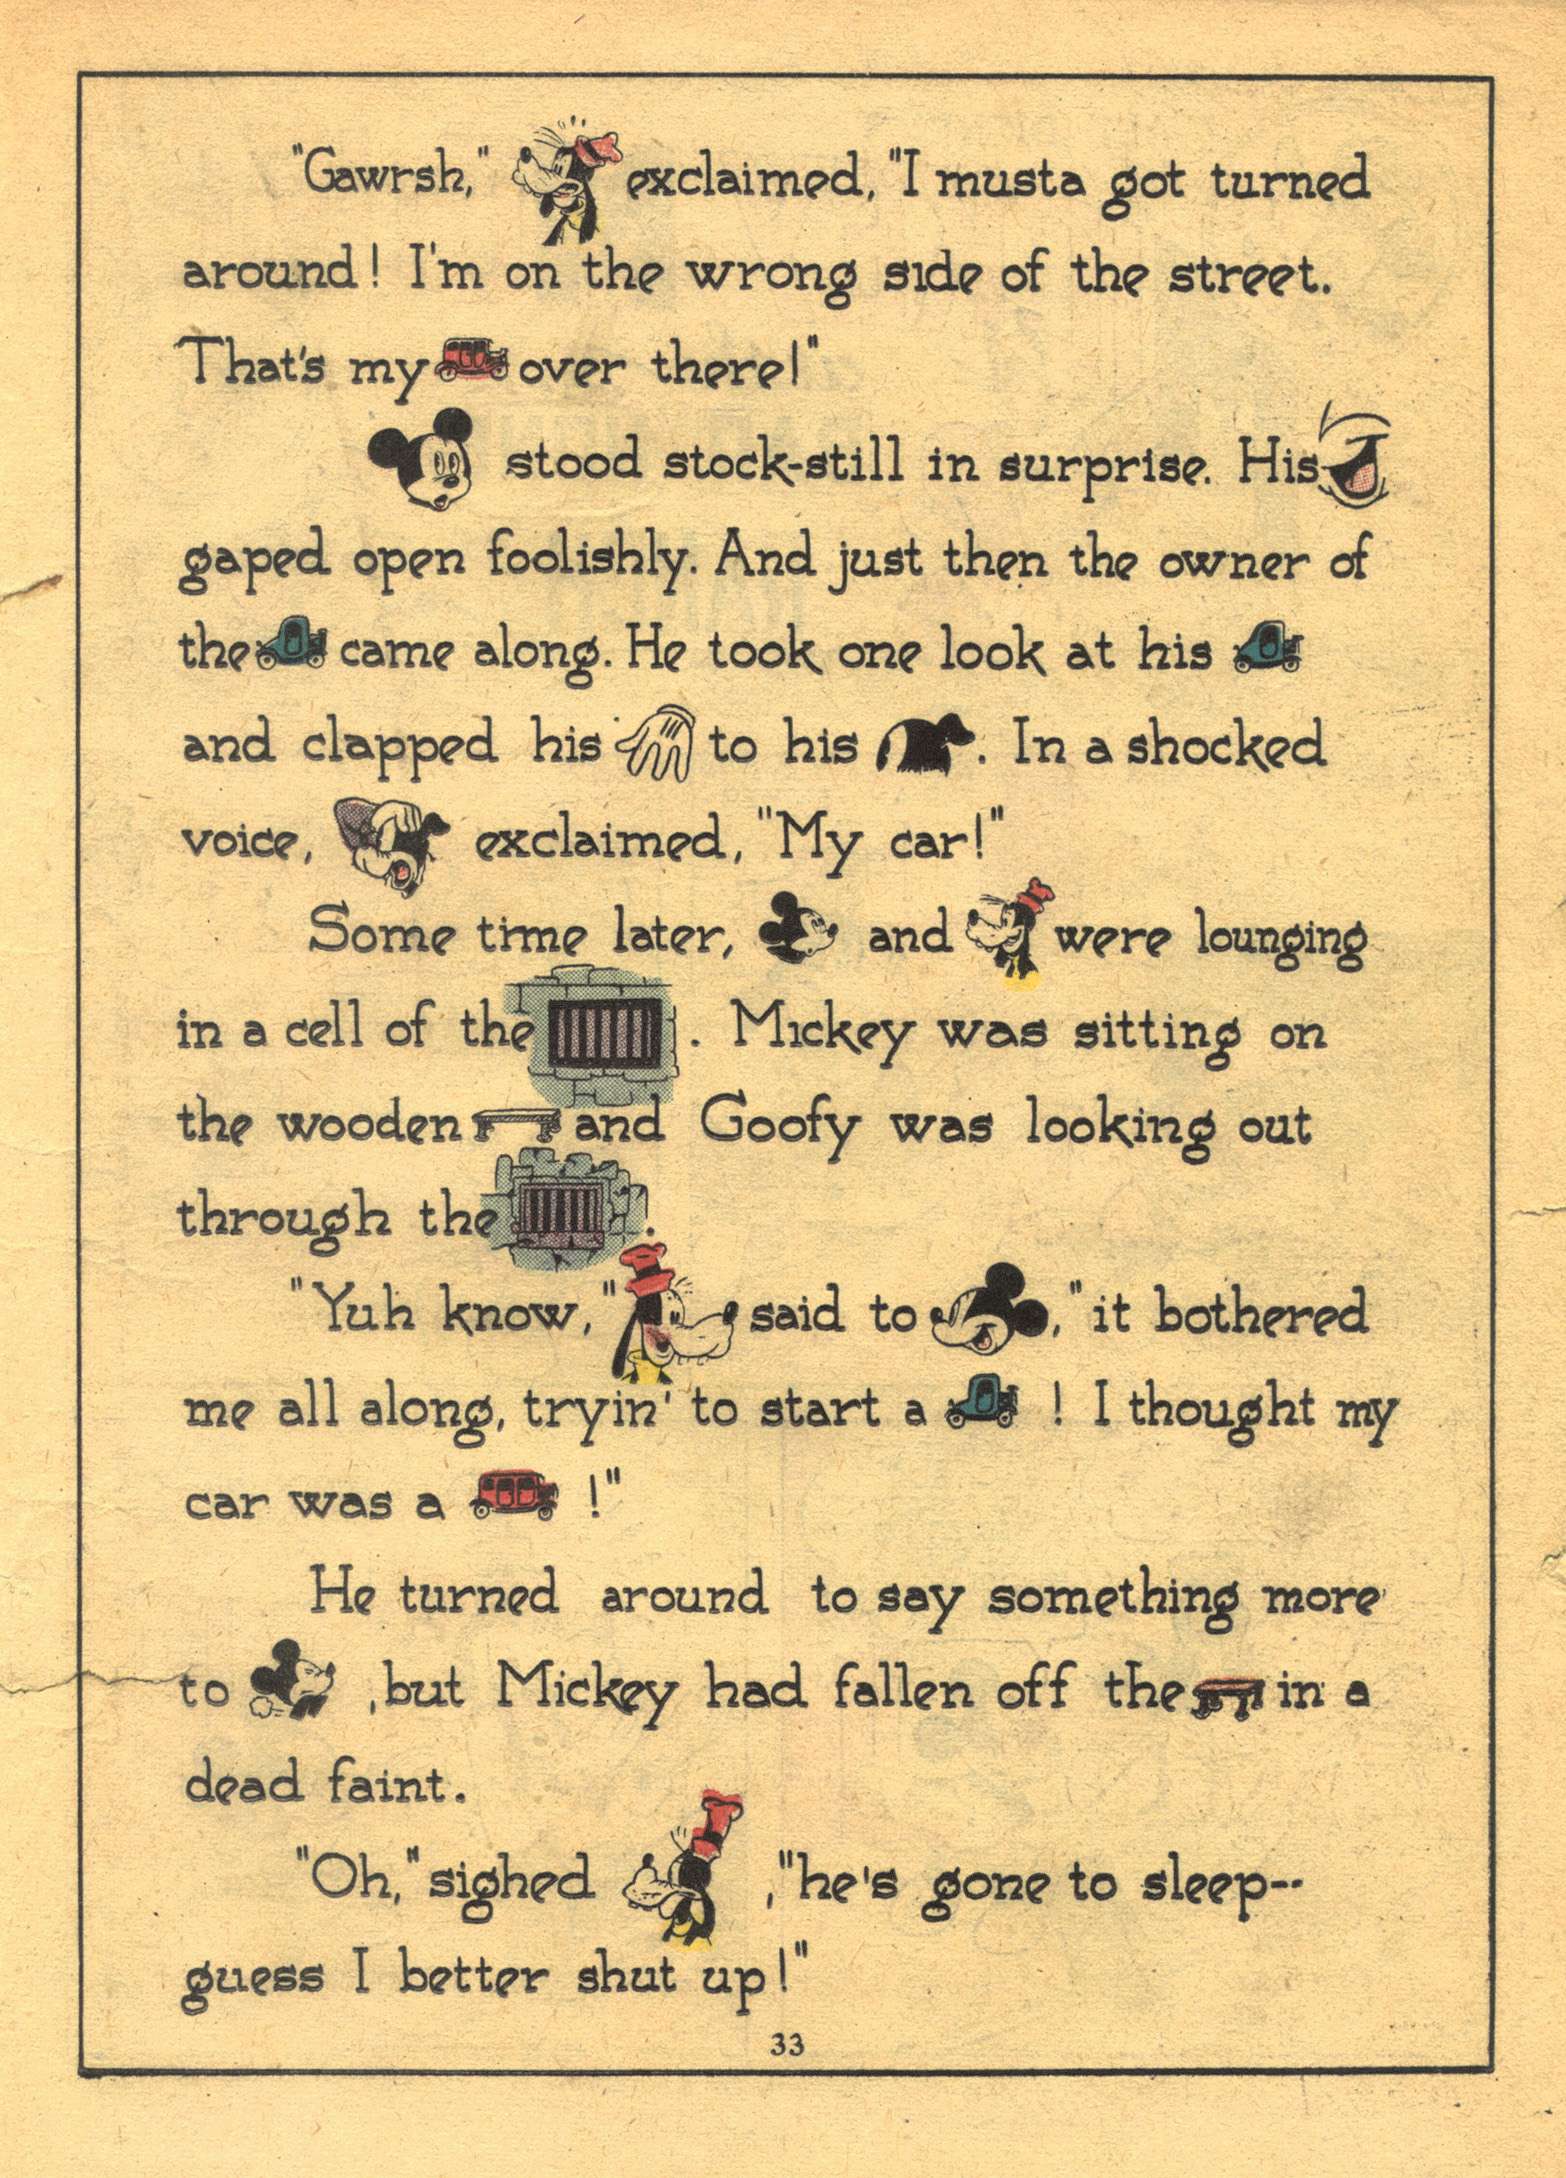 "Gawrsh," exclaimed, "I musta got turned
around! I'm on the wrong side of the street.
That's my over there!"
stood stock-still in surprise. His
gaped open foolishly. And just then the owner of
the came along. He took one look at his
and clapped his to his . In a shocked
voice, exclaimed, "My car!"
Some time later, and were lounging
in a cell of the . Mickey was sitting on
the wooden and Goofy was looking out
through the .
"Yuh know," said to , "it bothered
me all along, tryin' to start a ! I thought my
car was a !"
He turned around to say something more
to , but Mickey had fallen off the in a
dead faint.
"Oh," sighed , "he's gone to sleep--
guess I better shut up!"
33